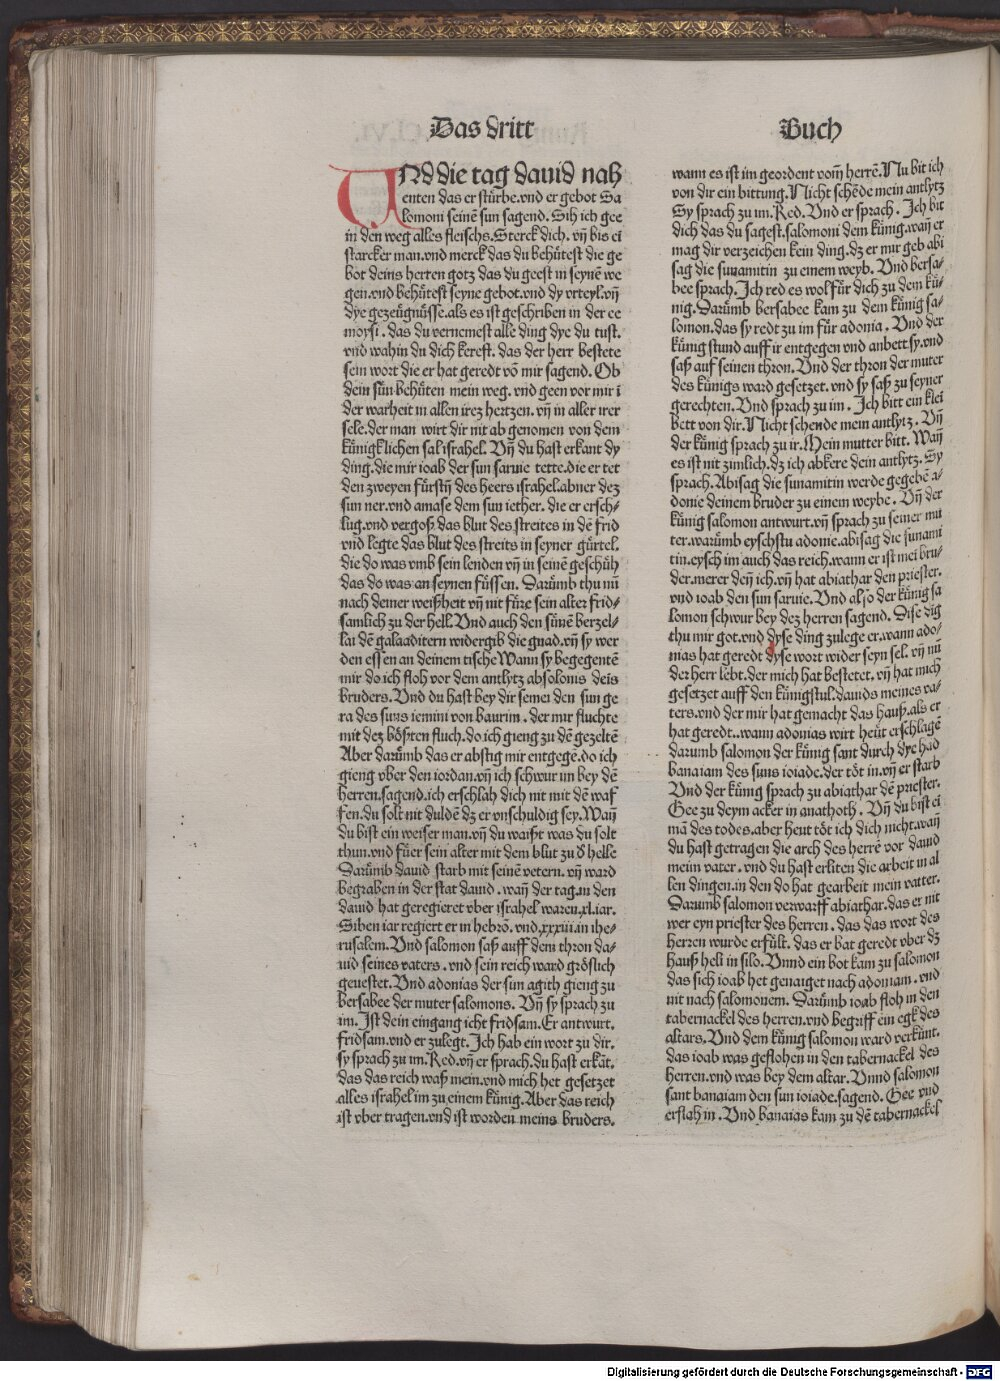 Das dritt
Buch
UNd die tag dauid nah
enten das er stürbe.vnd er gebot Sa
lomoni seinē sun sagend. Sih ich gee
in den weg alles fleischs.Sterck dich. vn̄ bis ei
starcker man.vnd merck das du behütest die ge
bot deins herren gotz das du geest in seynē we
gen.vnd behütest seyne gebot.vnd dy vrteyl.vn̄
dye gezeügnüsse.als es ist geschriben in der ee
moysi. das du vernemest alle ding dye du tust.
vnd wahin du dich kerest. das der herr bestete
sein wort die er hat geredt vō mir sagend. Ob
dein sün behüten mein weg. vnd geen vor mir ī
der warheit in allen irez hertzen. vn̄ in aller irer
sele.der man wirt dir nit ab genomen von dem
künigklichen sal israhel. Vn̄ du hast erkant dy
ding.die mir ioab der sun saruie tette.die er tet
den zweyen fürstn̄ des heers israhel.abner dez
sun ner.vnd amase dem sun iether. die er ersch-
lug.vnd vergoß das blut des streites in dē frid
vnd legte das blut des streits in seyner gürtel.
die do was vmb sein lenden vn̄ in seinē geschüh
das do was an seynen füssen. Darümb thu nū
nach deiner weißheit vn̄ nit füre sein alter frid-
samlich zu der hell. Vnd auch den sünē berzel-
lai dē galaaditern widergib die gnad.vn̄ sy wer
den essen an deinem tische Wann sy begegentē
mir do ich floh vor dem antlytz absolonis deis
bruders. Vnd du hast bey dir semei den sun ge
ra des suns iemini von baurim. der mir fluchte
mit dez bößten fluch.do ich gieng zu dē gezeltē
Aber darümb das er abstig mir entgegē.do ich
gieng vber den iordan.vn̄ ich schwur im bey dē
herren.sagend.ich erschlah dich nit mit dē waf
fen.du solt nit duldē dz er vnschuldig sey.Wan̄
du bist ein weiser man.vn̄ du waißt was du solt
thun.vnd füer sein alter mit dem blut zu d̄ helle
Darümb dauid starb mit seinē vetern. vn̄ ward
begraben in der stat dauid. wan̄ der tag.in den
dauid hat geregieret vber israhel waren.xl.iar.
Siben iar regiert er in hebrō. vnd.xxxiii.in ihe-
rusalem. Vnd salomon saß auff dem thron da-
uid seines vaters. vnd sein reich ward gröslich
geuestet. Vnd adonias der sun agith gieng zu
bersabee der muter salomons. Vn̄ sy sprach zu
im. Ist dein eingang icht fridsam. Er antwurt.
fridsam.vnd er zulegt. Ich hab ein wort zu dir.
sy sprach zu im.Red.vn̄ er sprach.du hast erkāt.
das das reich waß mein.vnd mich het gesetzet
alles israhel im zu einem künig. Aber das reich
ist vber tragen.vnd ist worden meins bruders.
wann es ist im geordent vom̄ herrē. Nu bit ich
von dir ein bittung. Nicht schēde mein antlytz
Sy sprach zu im. Red. Vnd er sprach. Ich bit
dich das du sagest.salomoni dem künig.wan̄ er
mag dir verzeichen kein ding.dz er mir geb abi
sag die sunamitin zu einem weyb. Vnd bersa-
bee sprach. Ich red es wol für dich zu dem kü-
nig. Darümb bersabee kam zu dem künig sa-
lomon.das sy redt zu im für adonia. Vnd der
künig stund auff ir entgegen vnd anbett sy.vnd
saß auf seinen thron. Vnd der thron der muter
des künigs ward gesetzet. vnd sy saß zu seyner
gerechten. Vnd sprach zu im. Ich bitt ein klei
bett von dir. Nicht schende mein antlytz. Vn̄
der künig sprach zu ir. Mein mutter bitt. Wan̄
es ist nit zimlich.dz ich abkere dein antlytz. Sy
sprach. Abisag die sunamitin werde gegebē a-
donie deinem bruder zu einem weybe. Vn̄ der
künig salomon antwurt.vn̄ sprach zu seiner mu
ter.warümb eyschstu adonie.abisag die sunami
tin.eysch im auch das reich.wann er ist mei bru-
der.merer den̄ ich.vn̄ hat abiathar den priester.
vnd ioab den sun saruie. Vnd also der künig sa
lomon schwur bey dez herren sagend. Dise dīg
thu mir got.vnd dyse ding zulege er.wann ado-
nias hat geredt dyse wort wider seyn sel. vn̄ nū
der herr lebt.der mich hat bestetet. vn̄ hat mich
gesetzet auff den künigstul.dauids meines va-
ters.vnd der mir hat gemacht das hauß.als er
hat geredt..wann adonias wirt heüt erschlagē
darumb salomon der künig sant durch dye hād
banaiam des suns ioiade.der töt in.vn̄ er starb
Vnd der künig sprach zu abiathar dē priester.
Gee zu deym acker in anathoth. Vn̄ du bist ei
mā des todes.aber heut töt ich dich nicht.wan̄
du hast getragen die arch des herrē vor dauid
mein vater. vnd du hast erliten die arbeit in al
len dingen.in den do hat gearbeit mein vatter.
Darumb salomon verwarff abiathar.das er nit
wer eyn priester des herren. das das wort des
herren wurde erfült. das er hat geredt vber dz
hauß heli in silo. Vnnd ein bot kam zu salomon
das sich ioab het genaiget nach adoniam. vnd
nit nach salomonem. Darümb ioab floh in den
tabernackel des herren.vnd begriff ein egk des
altars. Vnd dem künig salomon ward verkünt.
das ioab was geflohen in den tabernackel des
herren.vnd was bey dem altar. Vnnd salomon
sant banaiam den sun ioiade.sagend. Gee vnd
erslah in. Vnd banaias kam zu dē tabernackel
Digitalisierung gefördert durch die Deutsche Forschungsgemeinschaft - DFG